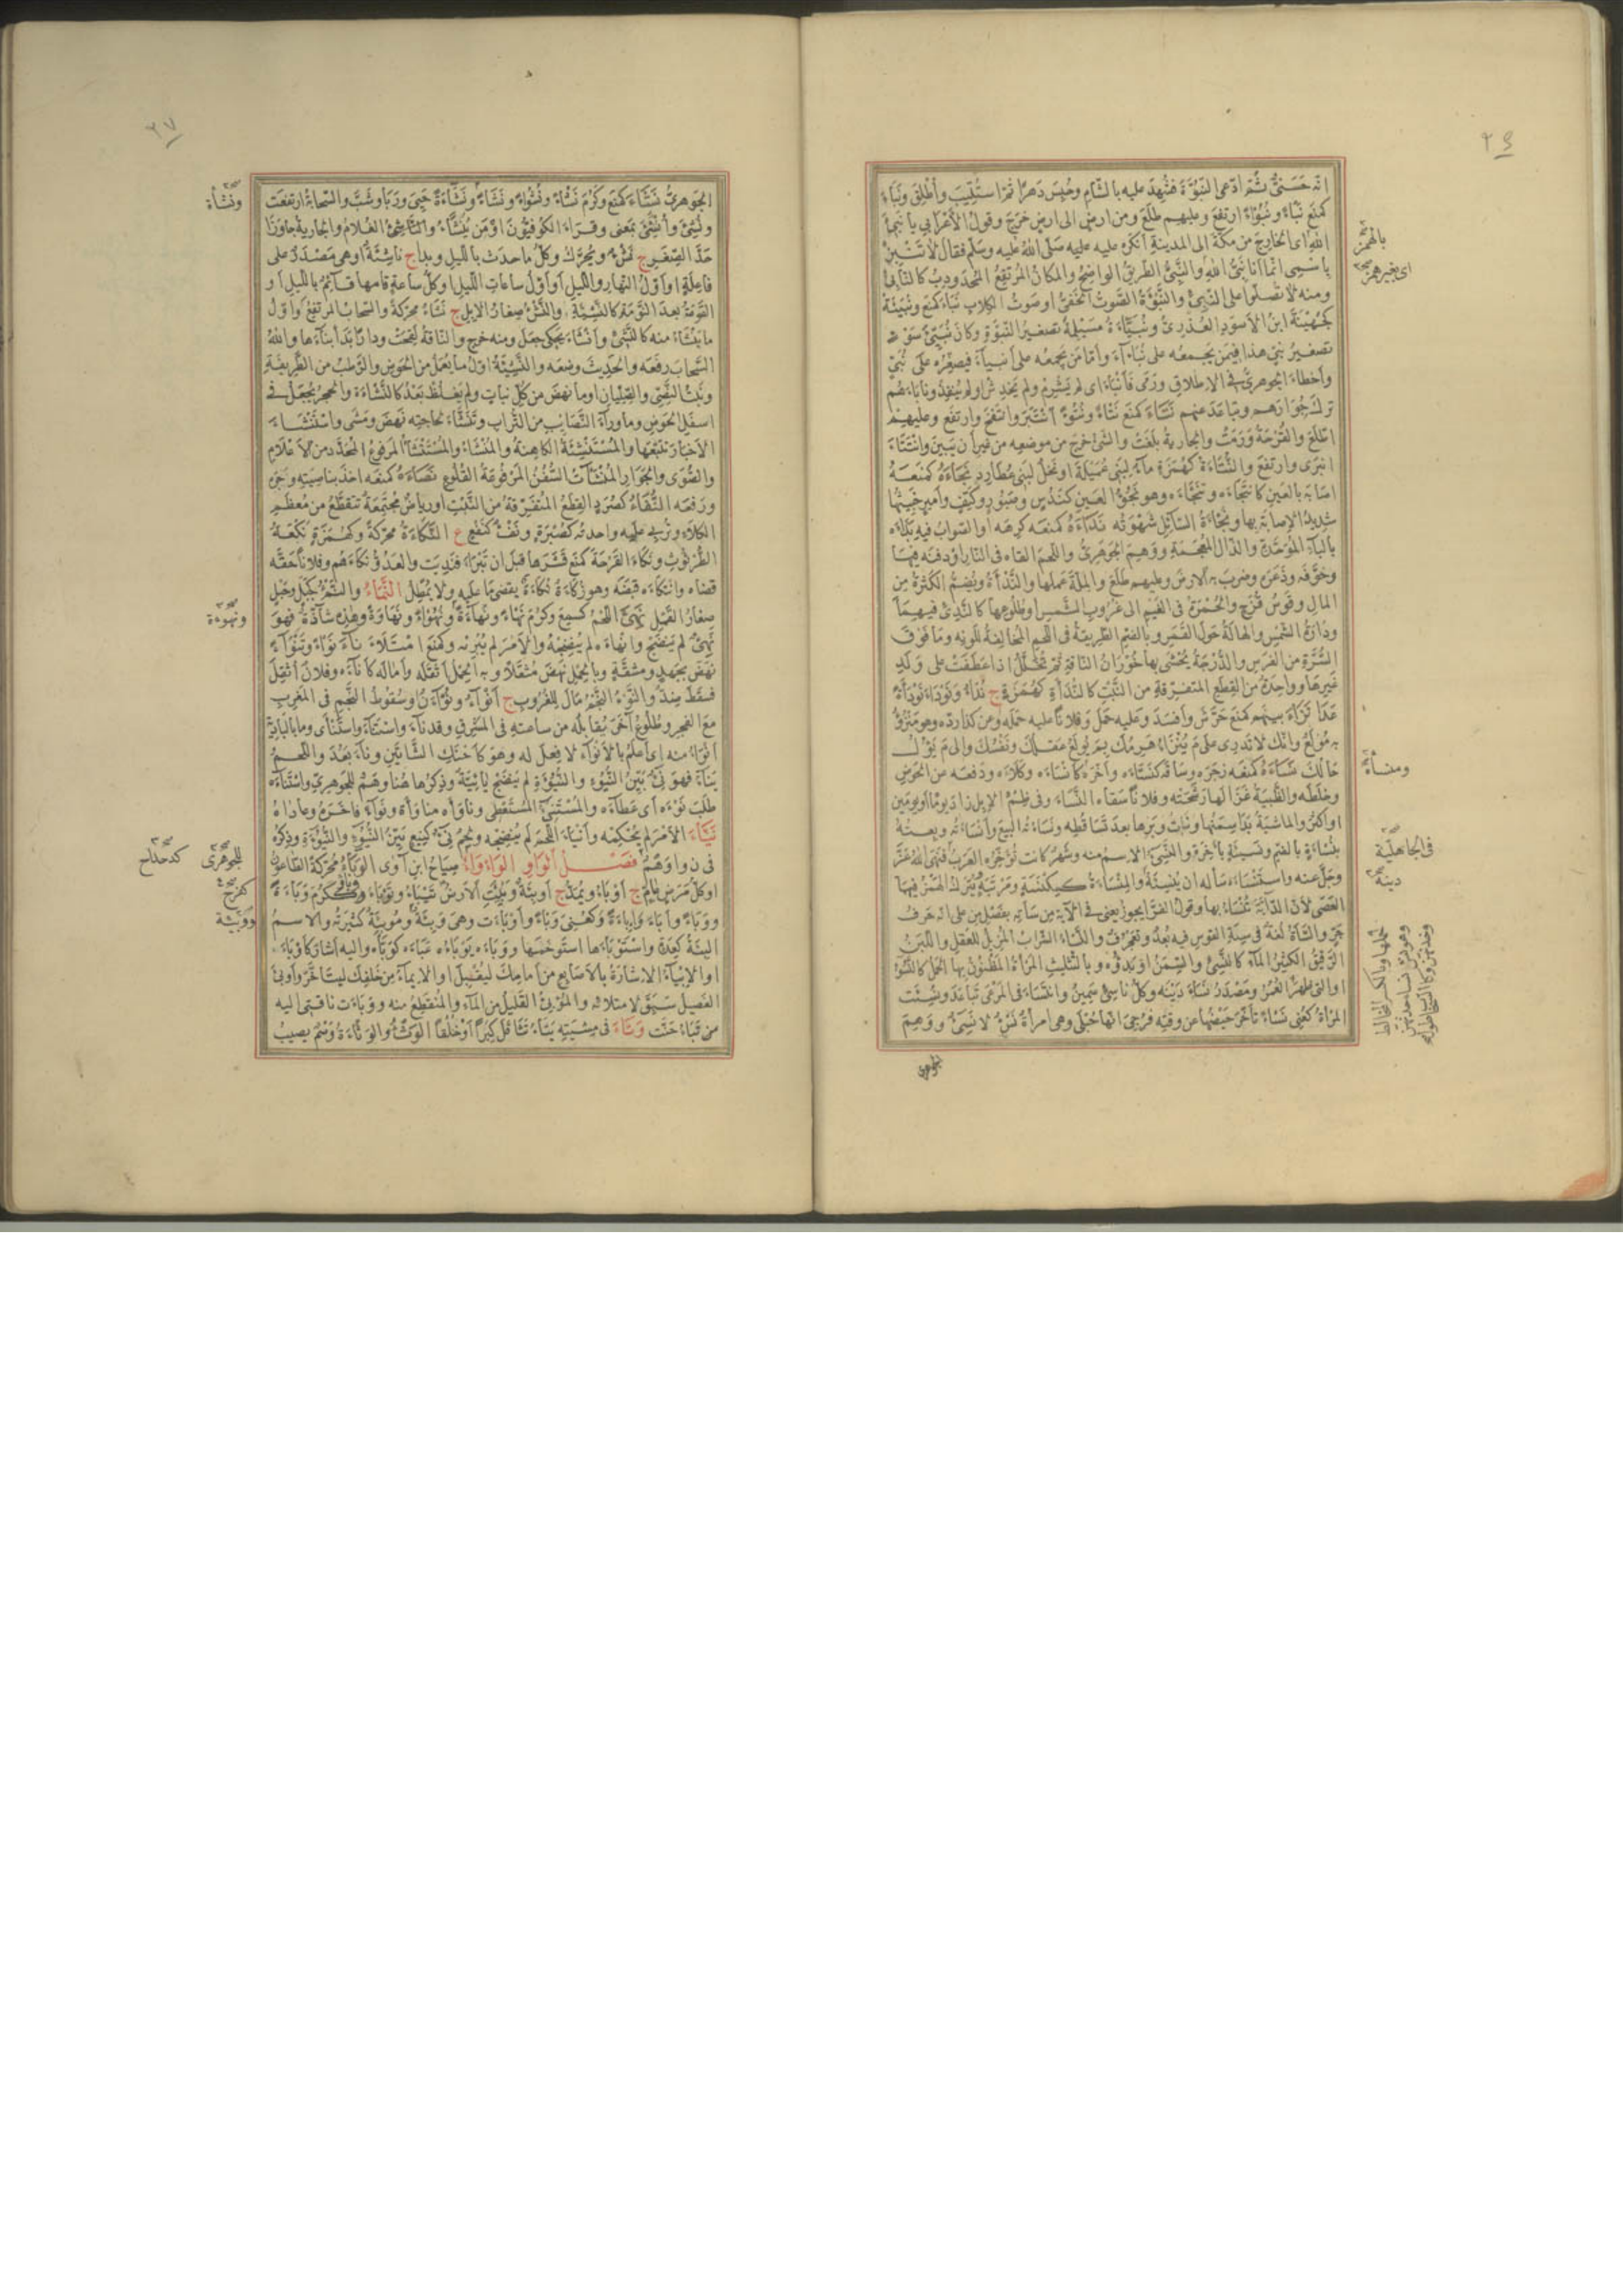 انه حسنى ثم ادعى النبوة فشهد عليه بالشام وحبس دهرا ثم استتيب واطلق ونباء
كمنع نباء ونبوءا ارتفع وعليهم طلع ومن ارض الى ارض خرج وقول الأعرابي يا نبئ
الله اى الخارج من مكة الى المدينة انكره عليه صلى الله عليه وسلم فقال لا تنبز
باسمى انما انا نبى الله والنبئ الطريق الواضح والمكان المرتفع المحدودب كالنابئ
ومنه لا تصلوا على النبئ والنبأة الصوت الخفى او صوت الكلاب نباء كمنع ونبيئة
كجهينة ابن الاسود العذرى ونبيئة مسيلمة تصغير النبوة وكان نبيئ سوء
تصغير نبئ هذا فيمن يجمعه على نباء واما من يجمعه على انبياء فيصغره على نبى
واخطاء الجوهرى فى الاطلاق ورمى فانباء اى لم يشرم ولم يخدش او لم ينفذ ونابأهم
ترك جوارهم وتباعد عنهم نتاء كمنع نتاء ونتوءا انتبر وانتفخ وارتفع وعليهم
اطلع والقرحة ورمت والجارية بلغت والشئ خرج من موضعه من غير ان يبين وانتتاء
انبرى وارتفع والنتأة كهمزة ماء لبنى عميلة او نخل لبنى عطارد نجأه كمنعه
اصابه بالعين كانتجأه وتنجأه وهو نجوء العين كندس وصبور وكتف وامير خبيثها
شديد الاصابة بها ونجأة السائل شهوته ندأه كمنعه كرهه او الصواب فيه بذأه
بالباء الموحدة والذال المعجمة ووهم الجوهرى واللحم القاه فى النار او دفنه فيها
وخوفه وذعره وضرب به الارض وعليهم طلع والملة عملها والندأة وتضم الكثرة من
المال وقوس قزح والحمرة فى الغيم الى غروب الشمس او طلوعها كالندئ فيهما
ودارة الشمس والهالة حول القمر وبالضم الطريقة فى اللحم المخالفة للونه وما فوق
السرة من الفرس والدرجة يحشى بها خوران الناقة ثم تخلل اذا عطفت على ولد
غيرها وواحدة من القطع المتفرقة من النبت كالندأة كهمزة ج ندأ ونودأ نودأة
عدا نزاء بينهم كمنع حرش وافسد وعليه حمل وفلانا عليه حمله وعن كذا رده وهو منزوء
به مولع وانك لا تدرى على م ينزاء هرمك بم يولع عقلك ونفسك والى م يؤل
حالك نسأه كمنعه زجره وساقه كنسأه واخره كانسأه وكلأه ودفعه عن الحوض
وخلطه والظبية غزالها رشحته وفلانا سقاه النساء وفى ظمء الابل زاد يوما او يومين
او اكثر والماشية بدا سمنها ونبات وبرها بعد تساقطه ونسأته البيع وانسأته وبعته
بنسأة بالضم ونسيئة باخرة والنسئ الاسم منه وشهر كانت تؤخره العرب فنهى الله عز
وجل عنه واستنسأه سأله ان ينسئه والمنسأة كمكنسة ومرتبة ويترك الهمز فيها
العصى لان الدابة تنسأ بها وقول الفرا يجوز يعنى فى الآية من سأته بفصل من على انه حرف
جر والسأة لغة فى سية القوس فيه بعد وتعجرف والنساء الشراب المزيل للعقل واللبن
الرقيق الكثير الماء كالنسئ والسمن او بدؤه وبالتثليث المرأة المظنون بها الحمل كالنسوء
او التى ظهر
المرأة كعنى نسأ تأخر حيضها عن وقته فرجى انها حبلى وهى امرأة نسء لا نسئ ووهم
الجوهرى
بالهمز
اى بغير همز
ومنسأة
فى الجاهلية
دينه
الجوهرى نشاء كمنع وكرم نشأ ونشوءا ونشأ ونشأة ونشاءة حيى وربا وشب والسحابة ارتفعت
ونشئ وانشئ بمعنى وقراء الكوفيون او من ينشأ والناشئ الغلام والجارية جاوزا
حد الصغر ج نشء ويحرك وكل ما حدث بالليل وبدا ج ناشئة او هى مصدر على
فاعلة او اول النهار والليل او اول ساعات الليل او كل ساعة قامها قائم بالليل او
القومة بعد النومة كالنشيئة والنشء صغار الابل ج نشأ محركة والسحاب المرتفع واول
ما ينشأ منه كالنشئ وانشاء يحكى جعل ومنه خرج والناقة لقحت ودارا بدأ بناءها والله
السحاب رفعه والحديث وضعه والنشيئة اول ما يعمل من الحوض والرطب من الطريفة
ونبت النصى والصليان او ما نهض من كل نبات ولم يغلظ بعد كالنشأة والحجر يجعل فى
اسفل الحوض وما وراء النصائب من التراب وتنشاء لحاجته نهض ومشى واستنشاء
الاخبار تتبعها والمستنشئة الكاهنة والمنشأ والمستنشأ المرفوع المحدد من الاعلام
والصوى والجوار المنشآت السفن المرفوعة القلوع نصأه كمنعه اخذ بناصيته وزجره
ورفعه النفأ كصرد القطع المتفرقة من النبت او رياض مجتمعة تنقطع من معظم
الكلاء وتربى عليه واحدته كصبرة ونفء كنفع ع النكأة محركة وكهمزة نكعة
الطرثوث ونكاء القرحة كمنع قشرها قبل ان تبرا فنديت والعدو نكأهم وفلانا حقه
قضاه وانتكأه قبضه وهو زكأة نكأة يقضى ما عليه ولا يمطل النمأ والنمء كجبل وحبل
صغار القمل نهئ اللحم كسمع وكرم نهأ ونهاءة ونهوءا ونهاوة وهذه شاذة فهو
نهئ لم ينضج وانهأه لم ينضجه والامر لم يبرمه وكمنع امتلاء ناء نوأ وتنواء
نهض بجهد ومشقة وبالحمل نهض مثقلا وبه الحمل اثقله واماله كاناءه وفلان اثقل
فسقط ضد والنوء النجم مال للغروب ج انواء ونوآن او سقوط النجم فى المغرب
مع الفجر وطلوع آخر يقابله من ساعته فى المشرق وقد ناء واستناء واستنأى وما بالبادية
انوأ منه اى اعلم بالانواء لا فعل له وهو كاحنك الشاتين وناء بعد واللحم
يناء فهو نئ بين النيوء والنيوءة لم ينضج يائية وذكرها هنا وهم للجوهرى واستناءه
طلب نوءه اى عطاءه والمستناء المستعطى وناوأه مناوأة ونواء فاخره وعاداه
نياء الامر لم يحكمه وانياء اللحم لم ينضجه ولحم نئ كنيع بين النيوء والنيوءة وذكره
فى ن و أ وهم فصل الواو الوأوأء صياح ابن آوى الوبأ محركة الطاعون
او كل مرض عام ج اوباء ويمد ج اوبئة وبئت الارض تيباء وتوباء وككرم وباءة
ووباء واباء واباءة وكعنى وبأ واوبأت وهى وبئة وموبئة كثيرته والاسم
البئة كعدة واستوبأها استوخمها ووبأه يوبأه عبأه كوبأه واليه اشار كاوباء
او الايباء الاشارة بالاصابع من امامك ليقبل او الايماء من خلفك ليتاخر واوبئ
الفصيل سنق لامتلائه والموبئ القليل من الماء والمنقطع منه ووبأت ناقتى اليه
من تباء حنت وتاء فى مشيته يتاء تثاقل كبرا او خلقا الوثء والوثاءة وصم يصيب
ونشأة
ونهوءة
للجوهرى
كدحداح
كفرح
ووبيئة
٢٧